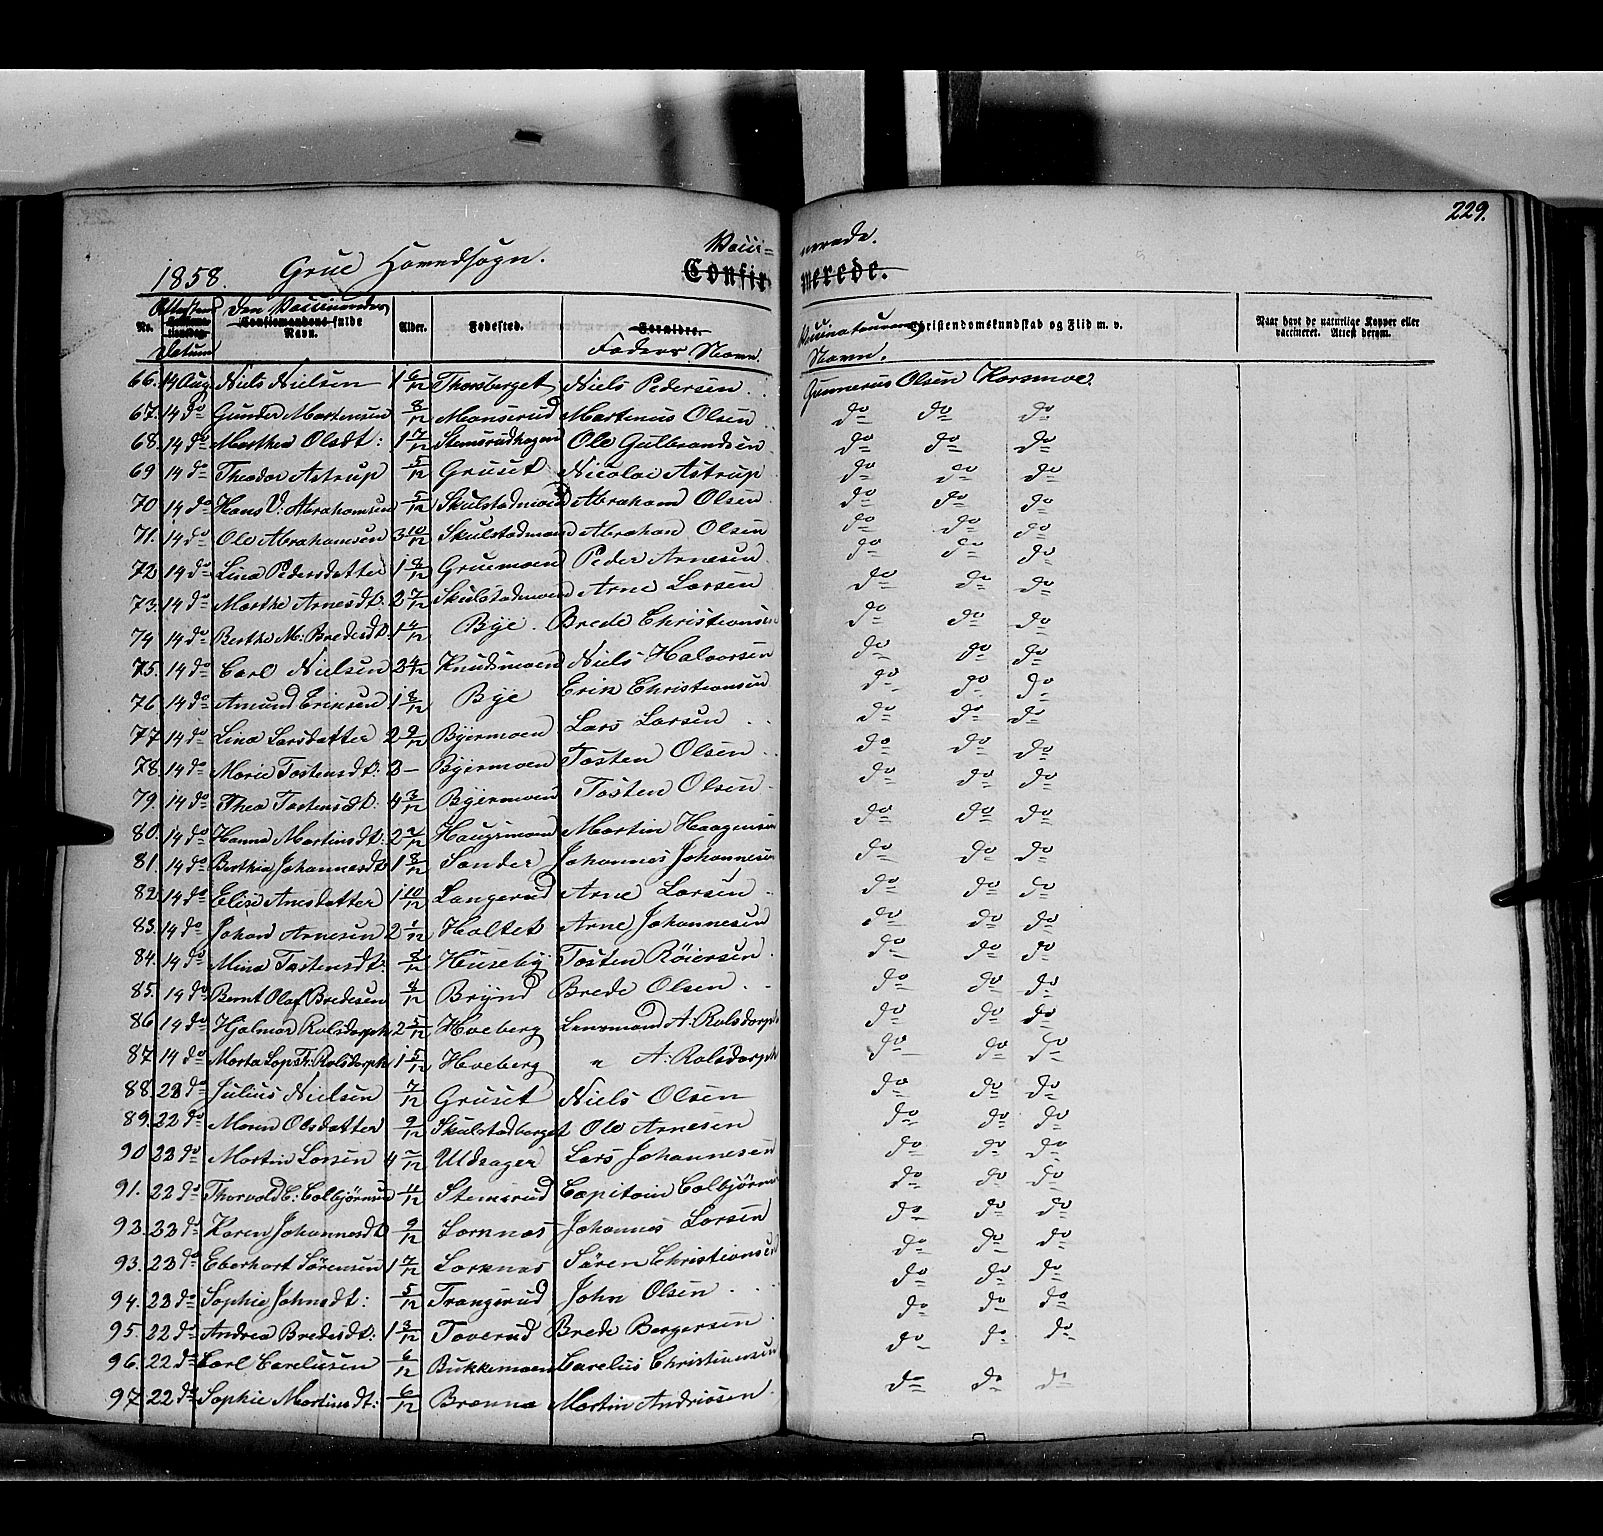 229.
1858. Grue Hovedsogn. Vacci= nerede.
Confir merede.
No. Attestens Datum Den Vaccineredes Confirmandens fulde Navn. Alder. Fødested. Forældre. Faders Navn. Vaccinateurens Navn. Christendomskundskab og Flid m. v. Naar havt de naturlige Kopper eller vaccineret. Attest derom.
66. 14 Aug Niels Nielsen 1 6/12 Thorsberget Niels Pedersen Gunnerius Olsen Korsmoe.
67. 14 do Gunder Martensen 8/12 Monserud Martinus Olsen do do do
68. 14 do Marthea Olsdt: 1 7/12 Stemsrudhagen Ole Gulbrandsen do do do
69 14 do Theodor Astrup 5/12 Gruset Nicolai Astrup do do do
70 14 do Hans V: Abrahamsen 5/12 Skulstadmoen Abraham Olsen do do do
71. 14 do Ole Abrahamsen 3 10/12 Skulstadmoen Abraham Olsen do do do
72 14 do Lina Pedersdatter 1 8/12 Gruemoen Peder Arnesen do do do
73. 14 do Marthe Arnesdt: 2 7/12 Skulstadmoen Arne Larsen do do do
74 14 do Berthe M: Bredesdt: 1 4/12 Bye Brede Christiansen do do do
75. 14 do Carl Nielsen 3 4/12 Knudsmoen Niels Halvorsen do do do
76 14 do Amund Eriksen 1 8/12 Bye Erik Christiansen do do do
77 14 do Lina Larsdatter 2 9/12 Byermoen Lars Larsen do do do
78. 14 do Marie Tostensdt: 3 – Byermoen Tosten Olsen do do do
79. 14 do Thea Tostensdt: 4 3/12 Byermoen Tosten Olsen do do do
80. 14 do Hanna Martinsdt: 2 /12 Haugsmoen Martin Haagensen do do do
81. 14 do Berthea Johannesdt 1 8/12 Sander Johannes Johannesen do do do
82. 14 do Elise Arnesdatter 1 10/12 Langerud Arne Larsen do do do
83. 14 do Johan Arnesen 2 1/12 Holtet Arne Johannesen do do do
84. 14 do Mina Tostensdt: 8/12 Huseby Tosten Röiersen do do do
85. 14 do Bernt Olaf Bredesen 8/12 Brynd Brede Olsen do do do
86 14 do Hjalmar Rolsdorph 2 5/12 Hveberg Lensmand A: Rolsdorph do do do
87 14 do Marta Rolsdorph 1 5/12 Hveberg " A: Rolsdorph do do do
88. 22 do Julius Nielsen 7/12 Gruset Niels Olsen do do do
89. 22 do Maren Olsdatter 9/12 Skulstadberget Ole Arnesen do do do
90 22 do Martin Larsen 4 /12 Udsager Lars Johannesen do do do
91. 22 do Thorvald C: Colbjørnsen 11/12 Stemsrud Capitain Colbjørnsen do do do
92. 22 do Karen Johannesdt 9/12 Lorknas Johannes Larsen do do do
93. 22 do Eberhart Sørensen 1 7/12 Lorknas Sören Christiansen do do do
94. 22 do Sophie Johnsdt: 5/12 Trangsrud John Olsen do do do
95. 22 do Andrea Bredesdt: 1 3/12 Toverud Brede Bergersen do do do
96. 22 do Carl Careliusen 6/12 Bukkemoen Carelius Christiansen do do do
97 22 do Sophie Martinsdt: 6/12 Brenna Martin Andriasen do do do